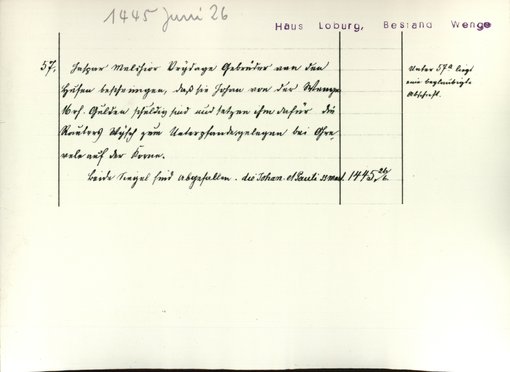 1445 Juni 26
Haus Loburg, Bestand Wenge
57. Jaspar Melchior Drÿdage Gebrüder von den
Hüfen bescheinigen, daß sie Johan von der Wenge
Gulden schuldig sind und setzen ihm dafür die
Reuters Wÿsch zum Unterpfande gelegen bei
auf der Korne.
beide Siegel sind abgefallen. die Johan. et Pauli mart. 1445 26/6
Unter 57a liegt
eine beglaubigte
Abschrift.